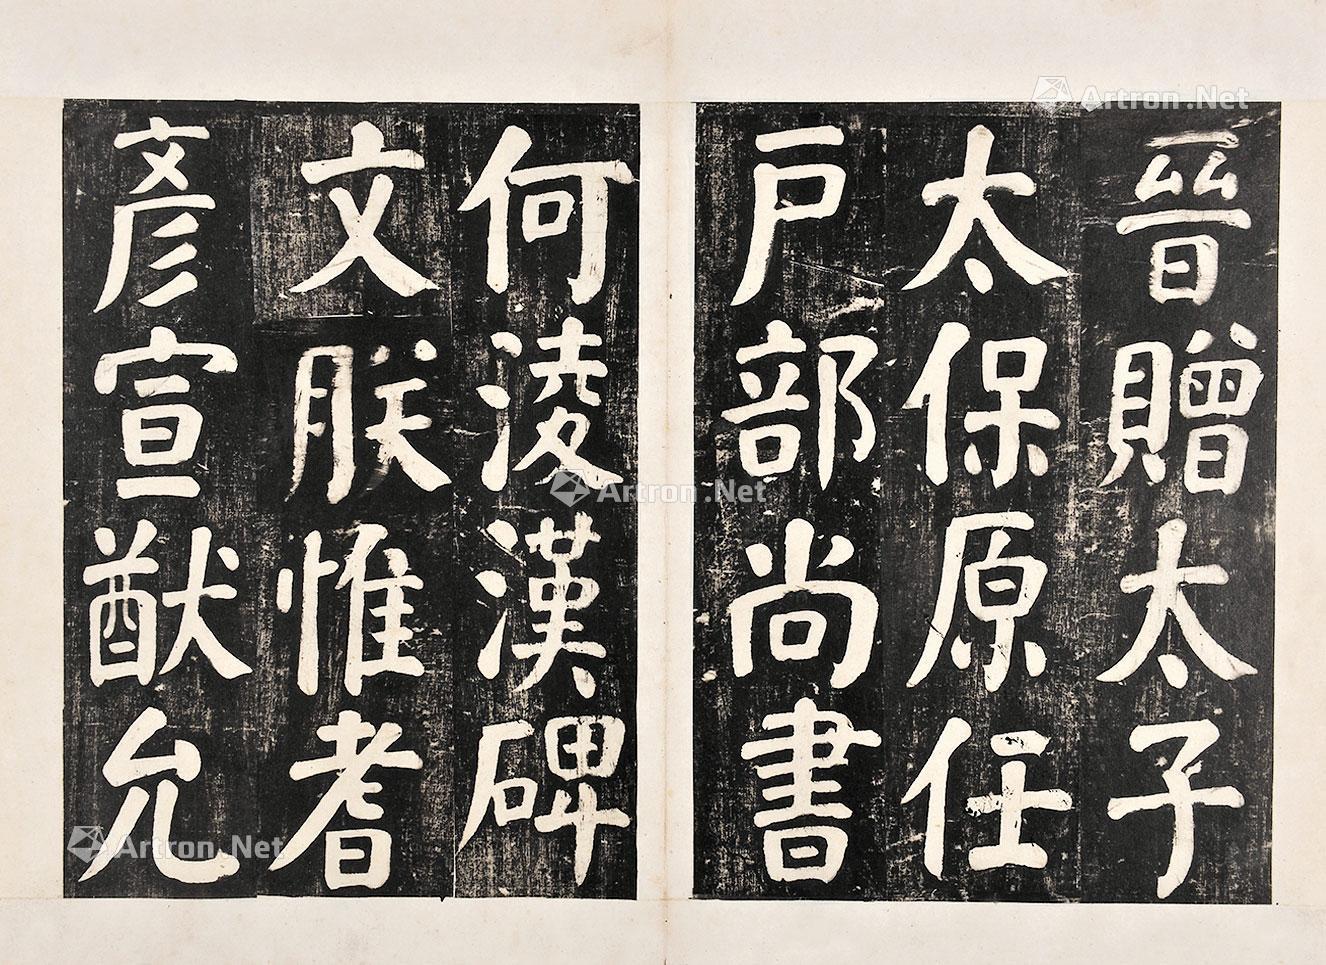 晉贈太子
太保原任
戸部尚書
何淩漢碑
文朕惟耆
彥宣猷允
Artron.Net
Artron.Net
Artron.Net